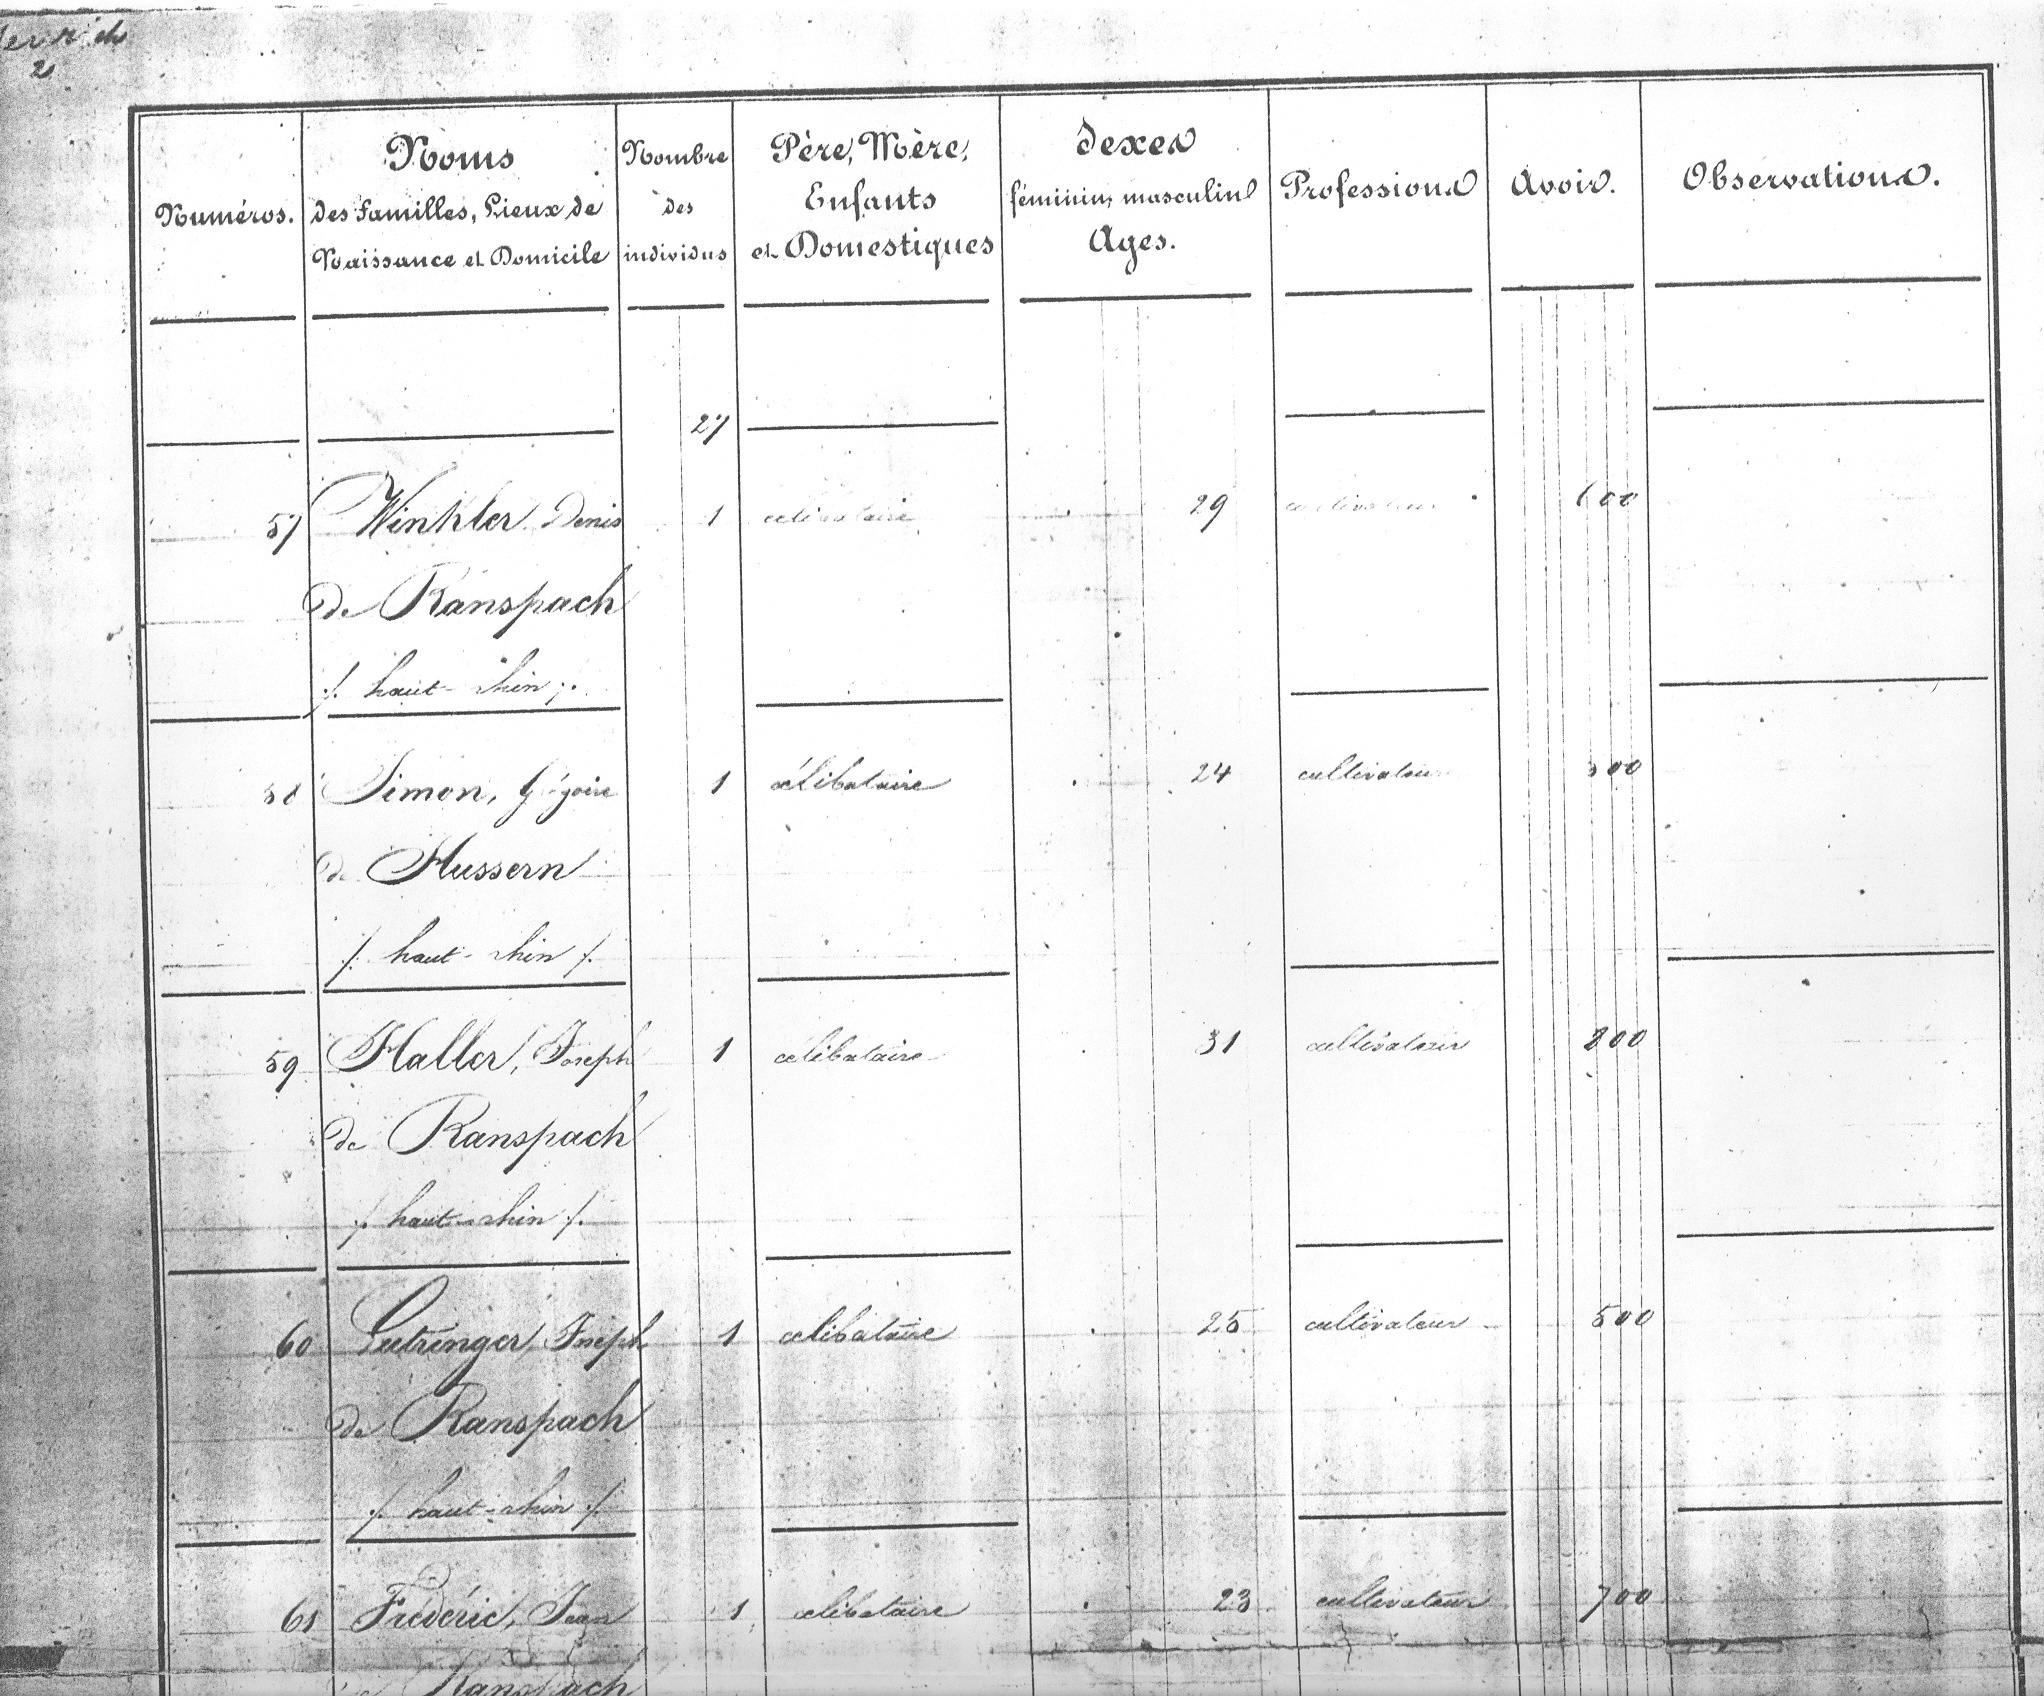 2
Numéros.
Noms
des Familles, Lieux de
Naissance et Domicile
Nombre
des
individus
Père, Mère,
Enfants
et Domestiques
Sexes
féminin, masculin
Ages.
Professions
Avoir.
Observations.
27
57 Winkler Denis 1 célibataire 29 cultivateur 600
de Ranspach
/. haut-rhin ./.
58 Simon, Grégoire 1 célibataire 24 cultivateur 500
de Hussern
/. haut-rhin /.
59 Haller, Joseph 1 célibataire 31 cultivateur 800
de Ranspach
/. haut-rhin /.
60 Joseph 1 célibataire 25 cultivateur 500
de Ranspach
/. haut-rhin /.
61 Fréderic, Jean 1 célibataire 23 cultivateur 700
Ranspach